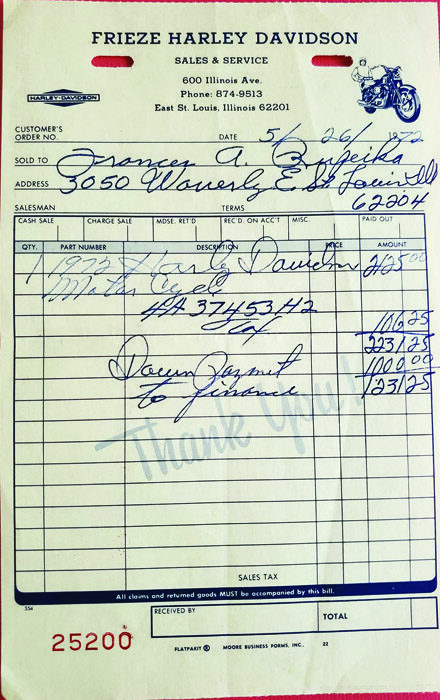 FRIEZE HARLEY DAVIDSON
SALES & SERVICE
600 Illinois Ave.
Phone: 874-9513
East St. Louis, Illinois 62201
HARLEY-DAVIDSON
CUSTOMER'S
ORDER NO. DATE 5/26/1972
SOLD TO Frances A.
ADDRESS 3050 Waverly E St Louis Ill
SALESMAN TERMS 62204
CASH SALE CHARGE SALE MDSE. RET'D REC'D. ON ACC'T MISC. PAID OUT
QTY. PART NUMBER DESCRIPTION PRICE AMOUNT
1 1972 Harley Davidson 2125 00
Motor Cycle
4A 37453 H2
Tax 106 25
2231 25
Down Paymet 1000 00
to finance 1231 25
Thank You!
SALES TAX
All claims and returned goods MUST be accompanied by this bill.
554
RECEIVED BY TOTAL
25200
FLATPAKIT ® MOORE BUSINESS FORMS, INC. 22